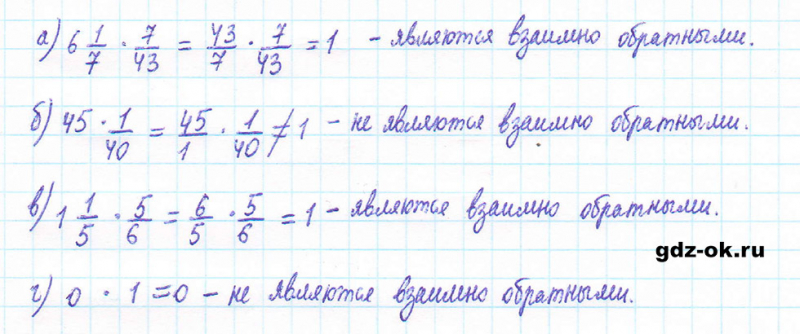 а) 6 1/7 · 7/43 = 43/7 · 7/43 = 1 – являются взаимно обратными.
б) 45 · 1/40 = 45/1 · 1/40 ≠ 1 – не являются взаимно обратными.
в) 1 1/5 · 5/6 = 6/5 · 5/6 = 1 – являются взаимно обратными.
gdz-ok.ru
г) 0 · 1 = 0 – не являются взаимно обратными.